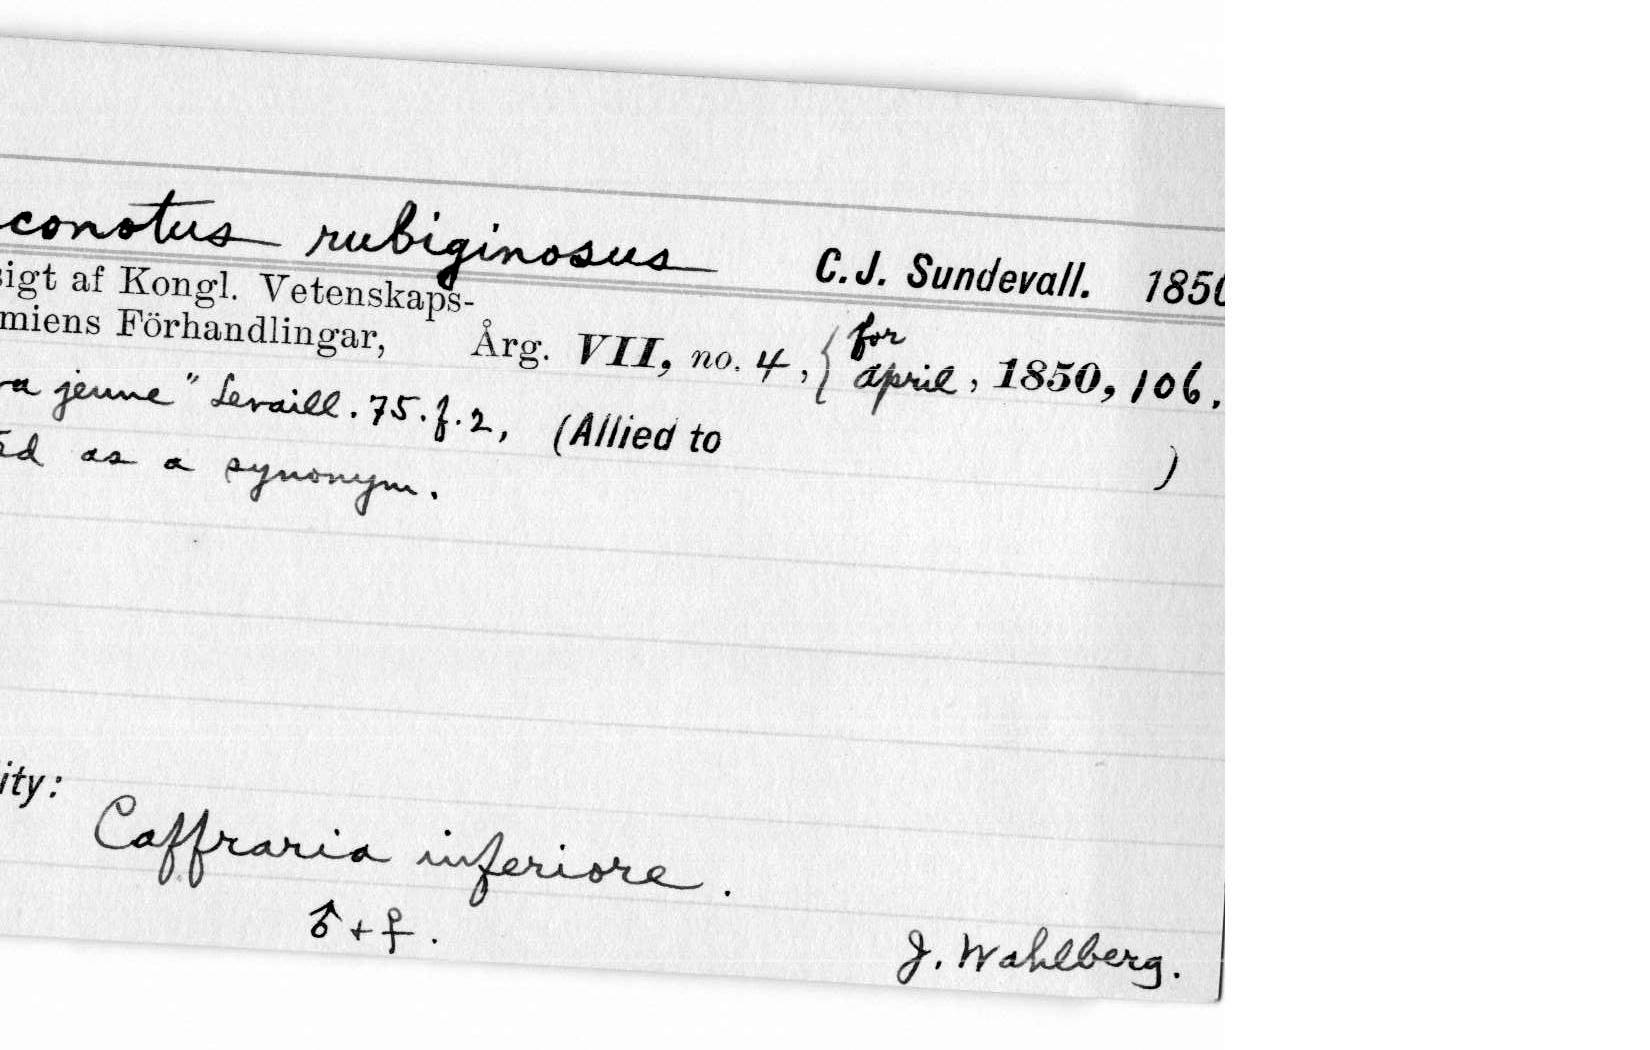 conotus rubiginosus C.J. Sundevall. 1850
sigt af Kongl. Vetenskaps-
miens Förhandlingar, Årg. VII, no. 4, { for april, 1850, 106.
jeune" Levaill. 75. f. 2, (Allied to )
as a synonym.
ity:
Caffraria inferiore.
♂ + ♀.
J. Wahlberg.